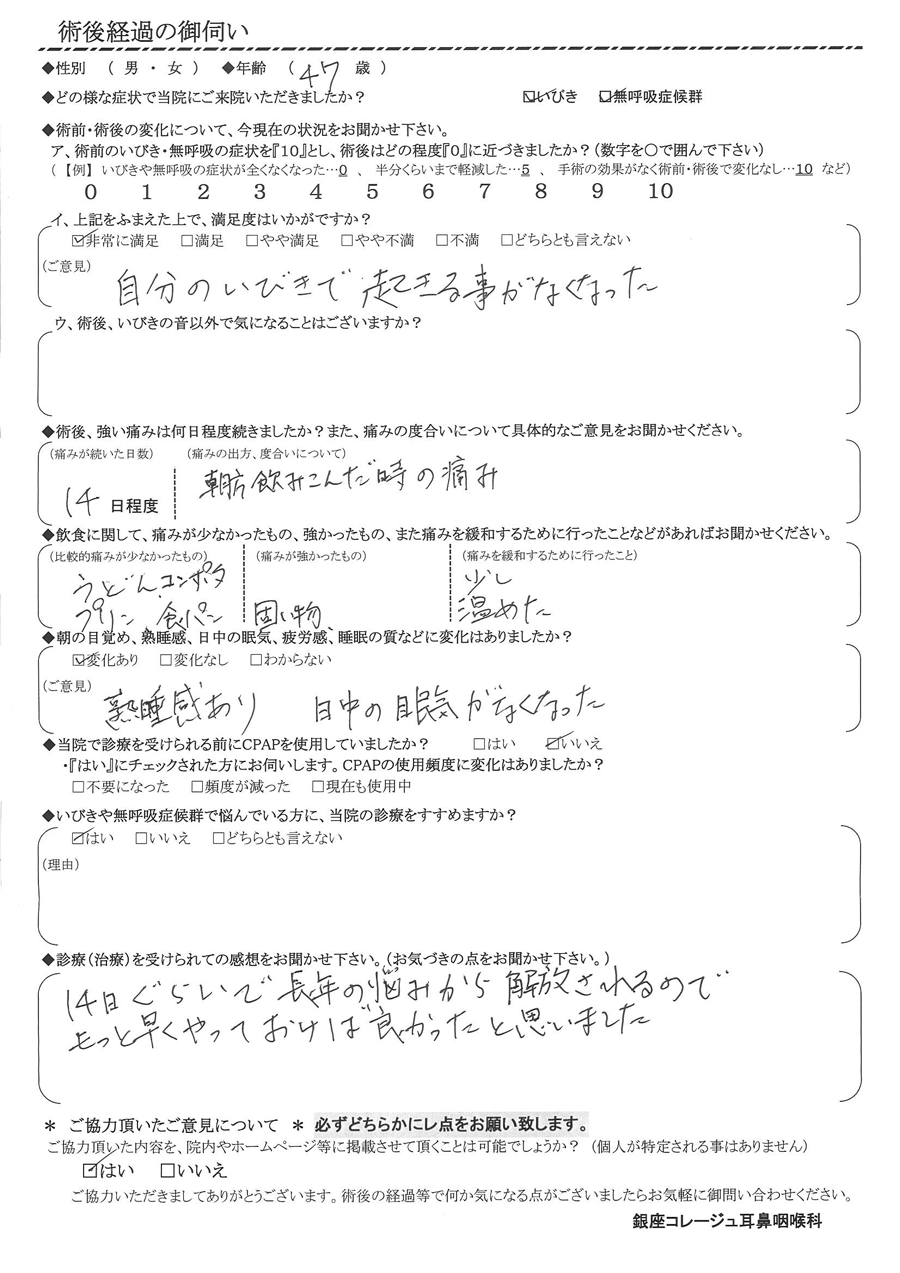 術後経過の御伺い
◆性別 (男・女) ◆年齢 (47歳)
◆どの様な症状で当院にご来院いただきましたか? ☑いびき ☑無呼吸症候群
◆術前・術後の変化について、今現在の状況をお聞かせ下さい。
ア、術前のいびき・無呼吸の症状を『10』とし、術後はどの程度『0』に近づきましたか?(数字を〇で囲んで下さい)
(【例】いびきや無呼吸の症状が全くなくなった…0 、 半分くらいまで軽減した…5 、 手術の効果がなく術前・術後で変化なし…10 など)
0 1 2 3 4 5 6 7 8 9 10
イ、上記をふまえた上で、満足度はいかがですか?
☑非常に満足 □満足 □やや満足 □やや不満 □不満 □どちらとも言えない
(ご意見)
自分のいびきで起きる事がなくなった
ウ、術後、いびきの音以外で気になることはございますか?
◆術後、強い痛みは何日程度続きましたか?また、痛みの度合いについて具体的なご意見をお聞かせください。
(痛みが続いた日数) (痛みの出方、度合いについて)
14日程度 朝方飲みこんだ時の痛み
◆飲食に関して、痛みが少なかったもの、強かったもの、また痛みを緩和するために行ったことなどがあればお聞かせください。
(比較的痛みが少なかったもの) (痛みが強かったもの) (痛みを緩和するために行ったこと)
うどん、コンポタ 少し
プリン 食パン 固い物 温めた
◆朝の目覚め、熟睡感、日中の眠気、疲労感、睡眠の質などに変化はありましたか?
☑変化あり □変化なし □わからない
(ご意見)
熟睡感あり 日中の眠気がなくなった
◆当院で診療を受けられる前にCPAPを使用していましたか? □はい ☑いいえ
・『はい』にチェックされた方にお伺いします。CPAPの使用頻度に変化はありましたか?
□不要になった □頻度が減った □現在も使用中
◆いびきや無呼吸症候群で悩んでいる方に、当院の診療をすすめますか?
☑はい □いいえ □どちらとも言えない
(理由)
◆診療(治療)を受けられての感想をお聞かせ下さい。(お気づきの点をお聞かせ下さい。)
14日ぐらいで長年の悩みから解放されるので
もっと早くやっておけば良かったと思いました
* ご協力頂いたご意見について * 必ずどちらかにレ点をお願い致します。
ご協力頂いた内容を、院内やホームページ等に掲載させて頂くことは可能でしょうか? (個人が特定される事はありません)
☑はい □いいえ
ご協力いただきましてありがとうございます。術後の経過等で何か気になる点がございましたらお気軽に御問い合わせください。
銀座コレージュ耳鼻咽喉科